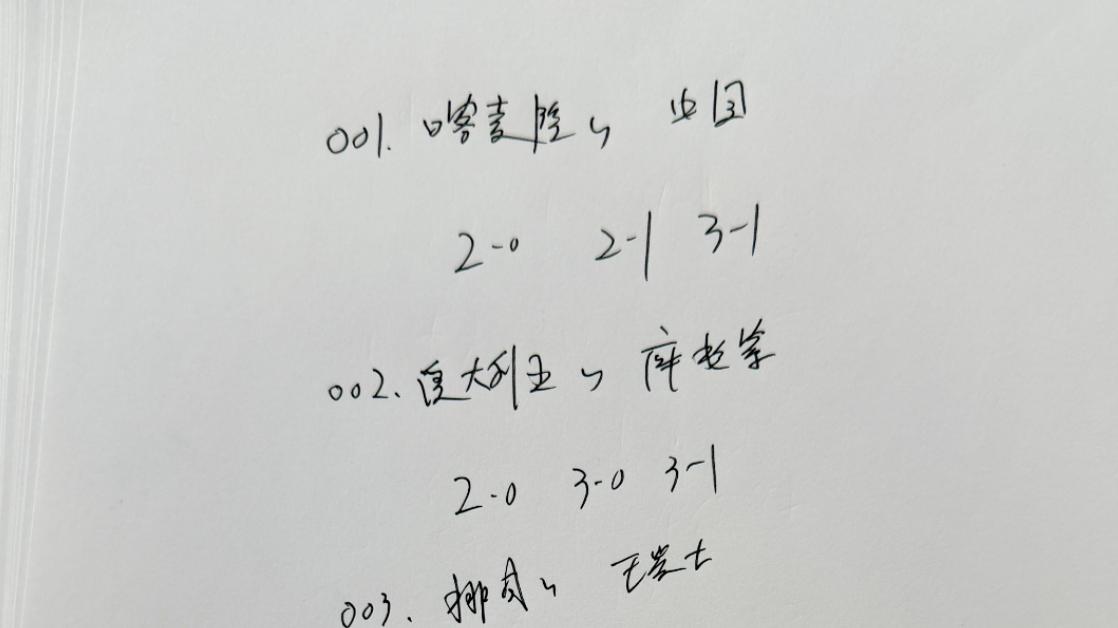 001. 喀麦隆 vs 中国
2-0 2-1 3-1
002. 澳大利亚 vs 库拉索
2-0 3-0 3-1
003. 挪威 vs 瑞士